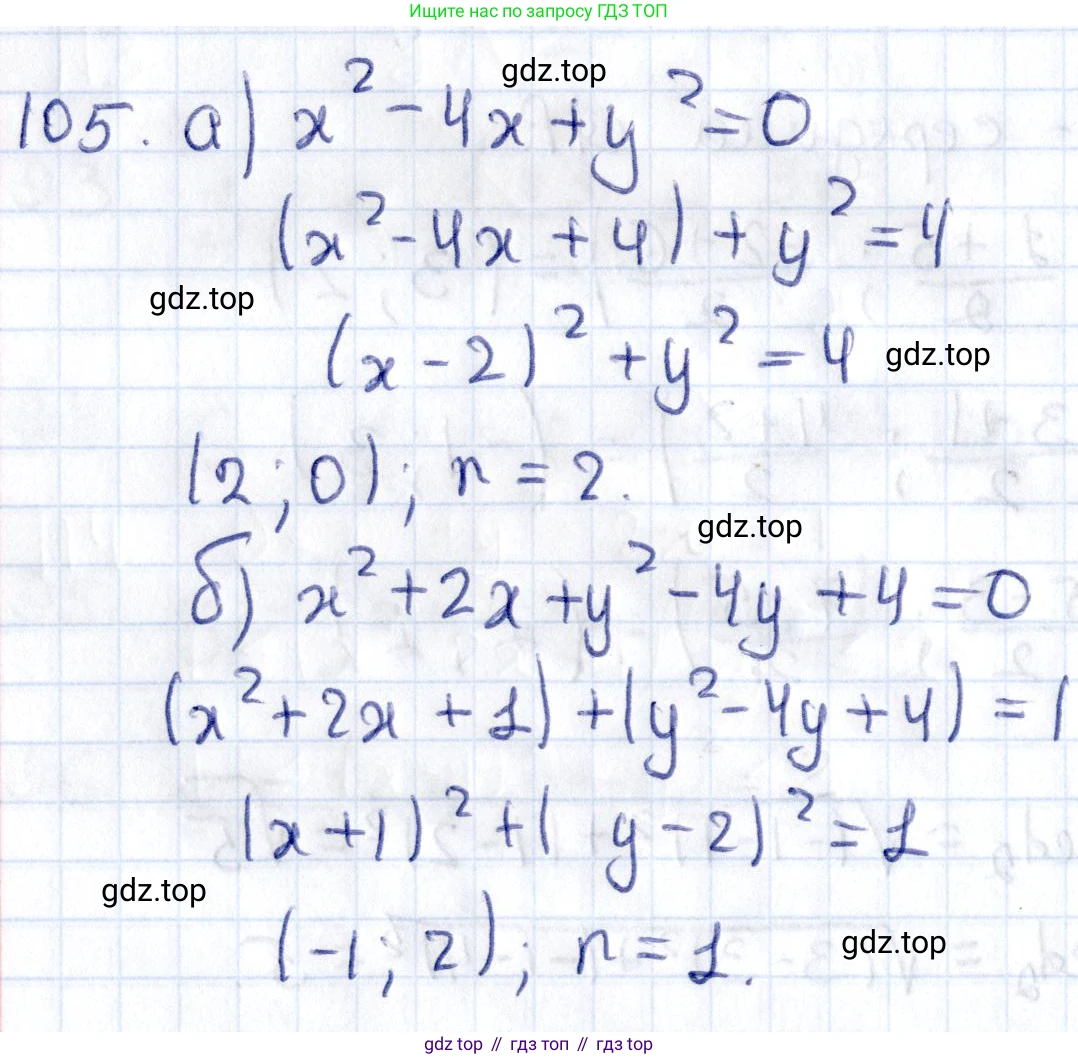 Ищите нас по запросу ГДЗ ТОП
gdz.top
105. а) x² - 4x + y² = 0
(x² - 4x + 4) + y² = 4
gdz.top
(x - 2)² + y² = 4
gdz.top
(2; 0); r = 2.
gdz.top
б) x² + 2x + y² - 4y + 4 = 0
(x² + 2x + 1) + (y² - 4y + 4) = 1
(x + 1)² + ( y - 2)² = 1
gdz.top
(-1; 2); r = 1.
gdz.top
gdz.top // гдз топ // гдз top